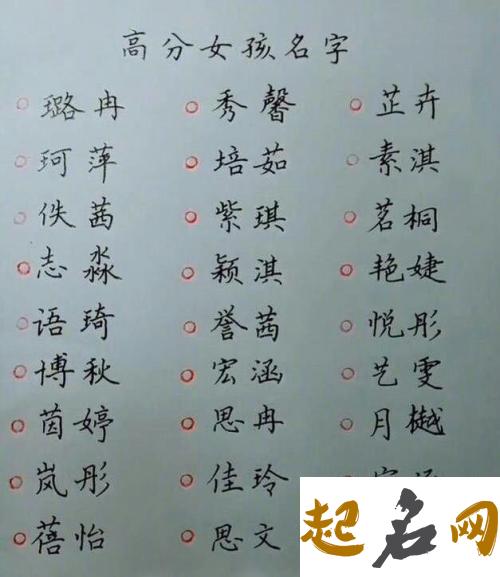 高分女孩名字
璐冉 秀馨 芷卉
珂萍 培茹 素淇
佚茜 紫琪 茗桐
志淼 颖淇 艳婕
语琦 誉茜 悦彤
博秋 宏涵 艺雯
茵婷 思冉 月樾
岚彤 佳玲
蓓怡 思文
起名网